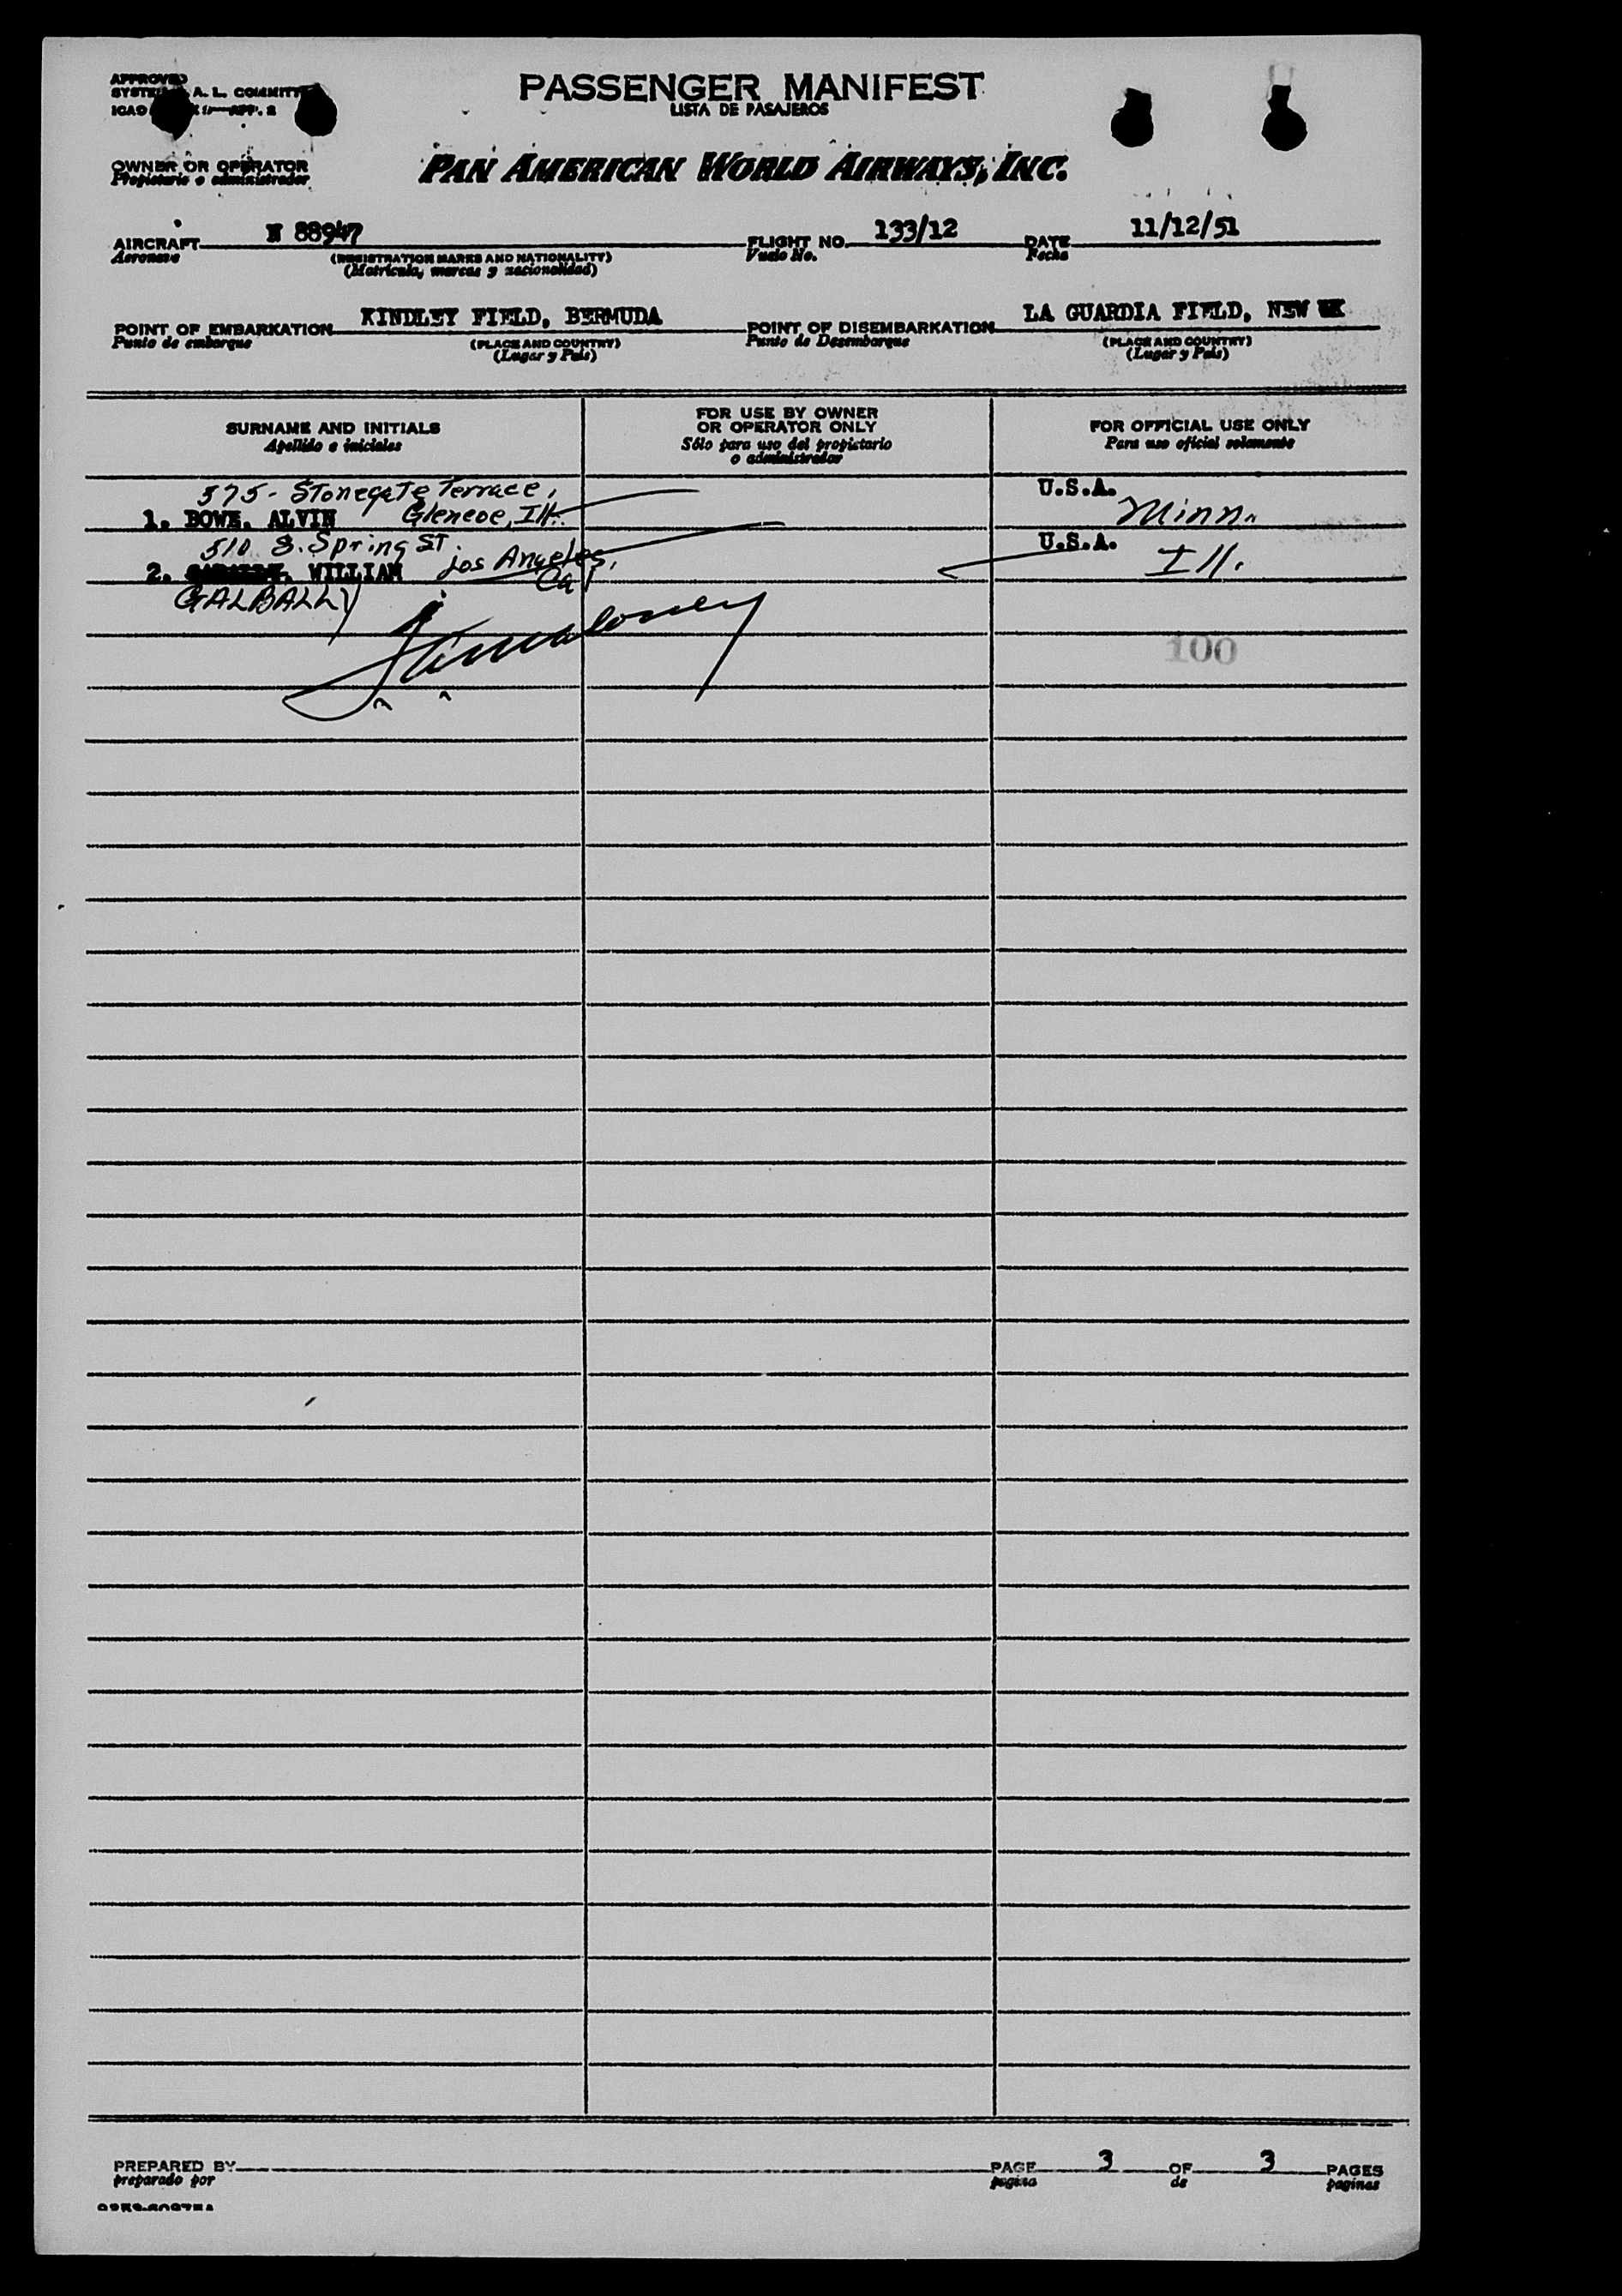 APPROVED
A. L. COMMITT
ICAO APP. 2
PASSENGER MANIFEST
LISTA DE PASAJEROS
OWNER OR OPERATOR
Propietario o administrador
PAN AMERICAN WORLD AIRWAYS, INC.
AIRCRAFT N 88947 FLIGHT NO. 133/12 DATE 11/12/51
Aeronave (REGISTRATION MARKS AND NATIONALITY) Vuelo No. Fecha
(Matrícula, marcas y nacionalidad)
POINT OF EMBARKATION KINDLEY FIELD, BERMUDA POINT OF DISEMBARKATION LA GUARDIA FIELD, NEW
Punto de embarque (PLACE AND COUNTRY) Punto de Desembarque (PLACE AND COUNTRY)
(Lugar y País) (Lugar y País)
SURNAME AND INITIALS FOR USE BY OWNER OR OPERATOR ONLY FOR OFFICIAL USE ONLY
Apellido e iniciales Sólo para uso del propietario o administrador Para uso oficial solamente
575- Stonegate Terrace, U.S.A.
1. BOWE, ALVIN Glencoe, Ill. Minn.
510 S. Spring ST. U.S.A.
2. WILLIAM Los Angeles, Cal Ill.
GALBALLY
100
PREPARED BY PAGE 3 OF 3 PAGES
preparado por pagina de paginas